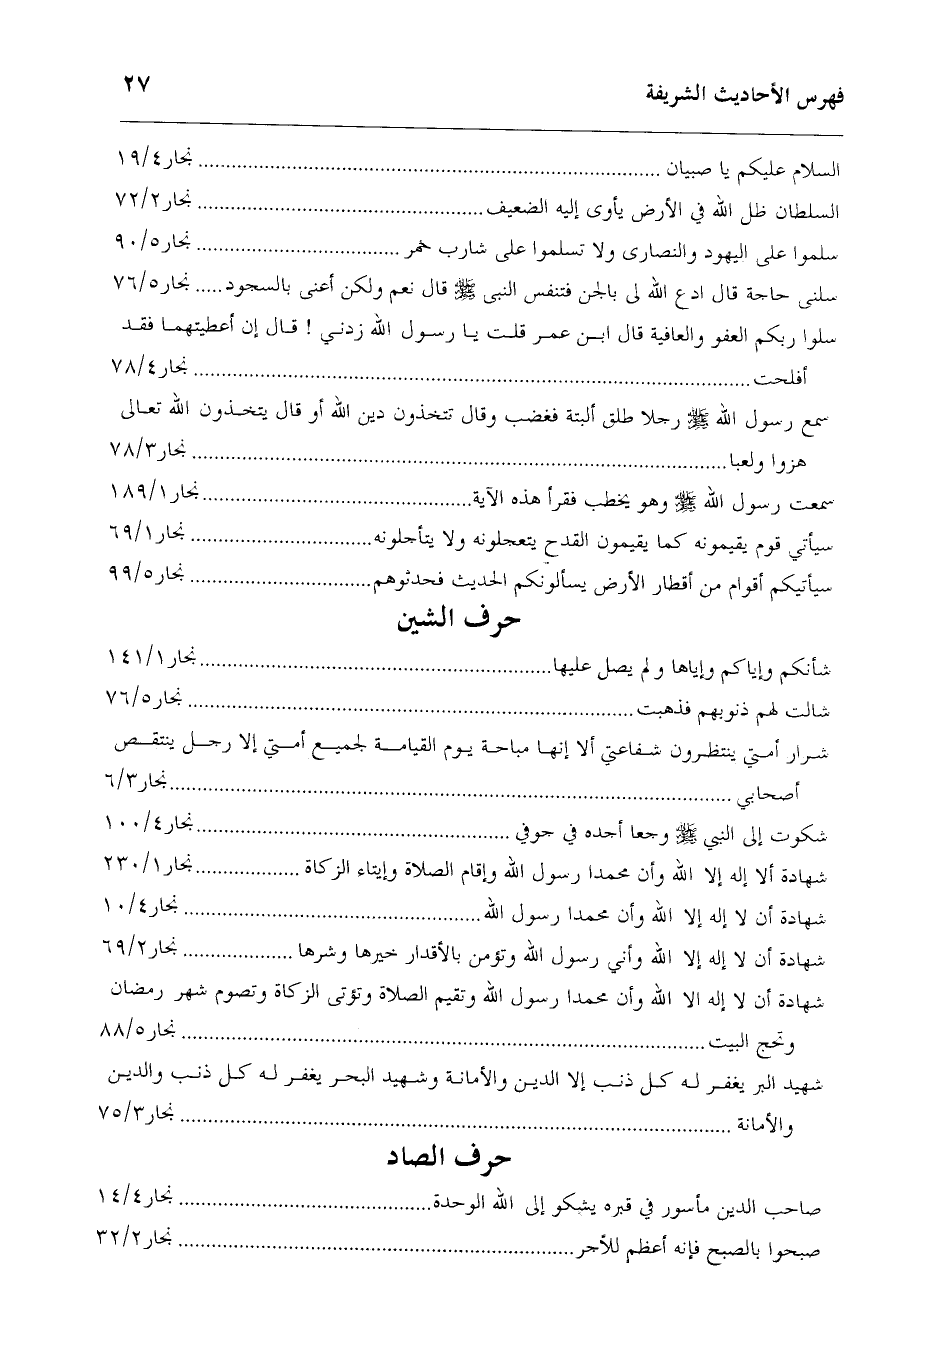 فهرس الأحاديث الشريفة ٢٧
السلام عليكم يا صبيان ........ نجار١٩/٤
السلطان ظل الله في الأرض يأوى إليه الضعيف........ نجار٧٢/٢
سلموا على اليهود والنصارى ولا تسلموا على شارب خمر ........ نجار٩٠/٥
سلنى حاجة قال ادع الله لى بالجن فتنفس النبى ﷺ قال نعم ولكن أعنى بالسجود..... نجار٧٦/٥
سلوا ربكم العفو والعافية قال ابن عمر قلت يا رسول الله زدني ! قال إن أعطيتهما فقد
أفلحت ........ نجار٧٨/٤
سمع رسول الله ﷺ رجلا طلق ألبتة فغضب وقال تتخذون دين الله أو قال يتخذون الله تعالى
هزوا ولعبا........ نجار٧٨/٣
سمعت رسول الله ﷺ وهو يخطب فقرأ هذه الآية........ نجار١٨٩/١
سيأتي قوم يقيمونه كما يقيمون القدح يتعجلونه ولا يتأجلونه........ نجار٦٩/١
سيأتيكم أقوام من أقطار الأرض يسألونكم الحديث فحدثوهم........ نجار٩٩/٥
حرف الشين
شأنكم وإياكم وإياها ولم يصل عليها........ نجار١٤١/١
شالت لهم ذنوبهم فذهبت ........ نجار٧٦/٥
شرار أمتي ينتظرون شفاعتي ألا إنها مباحة يوم القيامة لجميع أمتي إلا رجل ينتقص
أصحابي ........ نجار٦/٣
شكوت إلى النبي ﷺ وجعا أجده في جوفي ........ نجار١٠٠/٤
شهادة ألا إله إلا الله وأن محمدا رسول الله وإقام الصلاة وإيتاء الزكاة ........ نجار٢٣٠/١
شهادة أن لا إله إلا الله وأن محمدا رسول الله........ نجار١٠/٤
شهادة أن لا إله إلا الله وأني رسول الله وتؤمن بالأقدار خيرها وشرها ........ نجار٦٩/٢
شهادة أن لا إله الا الله وأن محمدا رسول الله وتقيم الصلاة وتؤتى الزكاة وتصوم شهر رمضان
وتحج البيت ........ نجار٨٨/٥
شهيد البر يغفر له كل ذنب إلا الدين والأمانة وشهيد البحر يغفر له كل ذنب والدين
والأمانة ........ نجار٧٥/٣
حرف الصاد
صاحب الدين مأسور في قبره يشكو إلى الله الوحدة........ نجار١٤/٤
صبحوا بالصبح فإنه أعظم للأجر........ نجار٣٢/٢